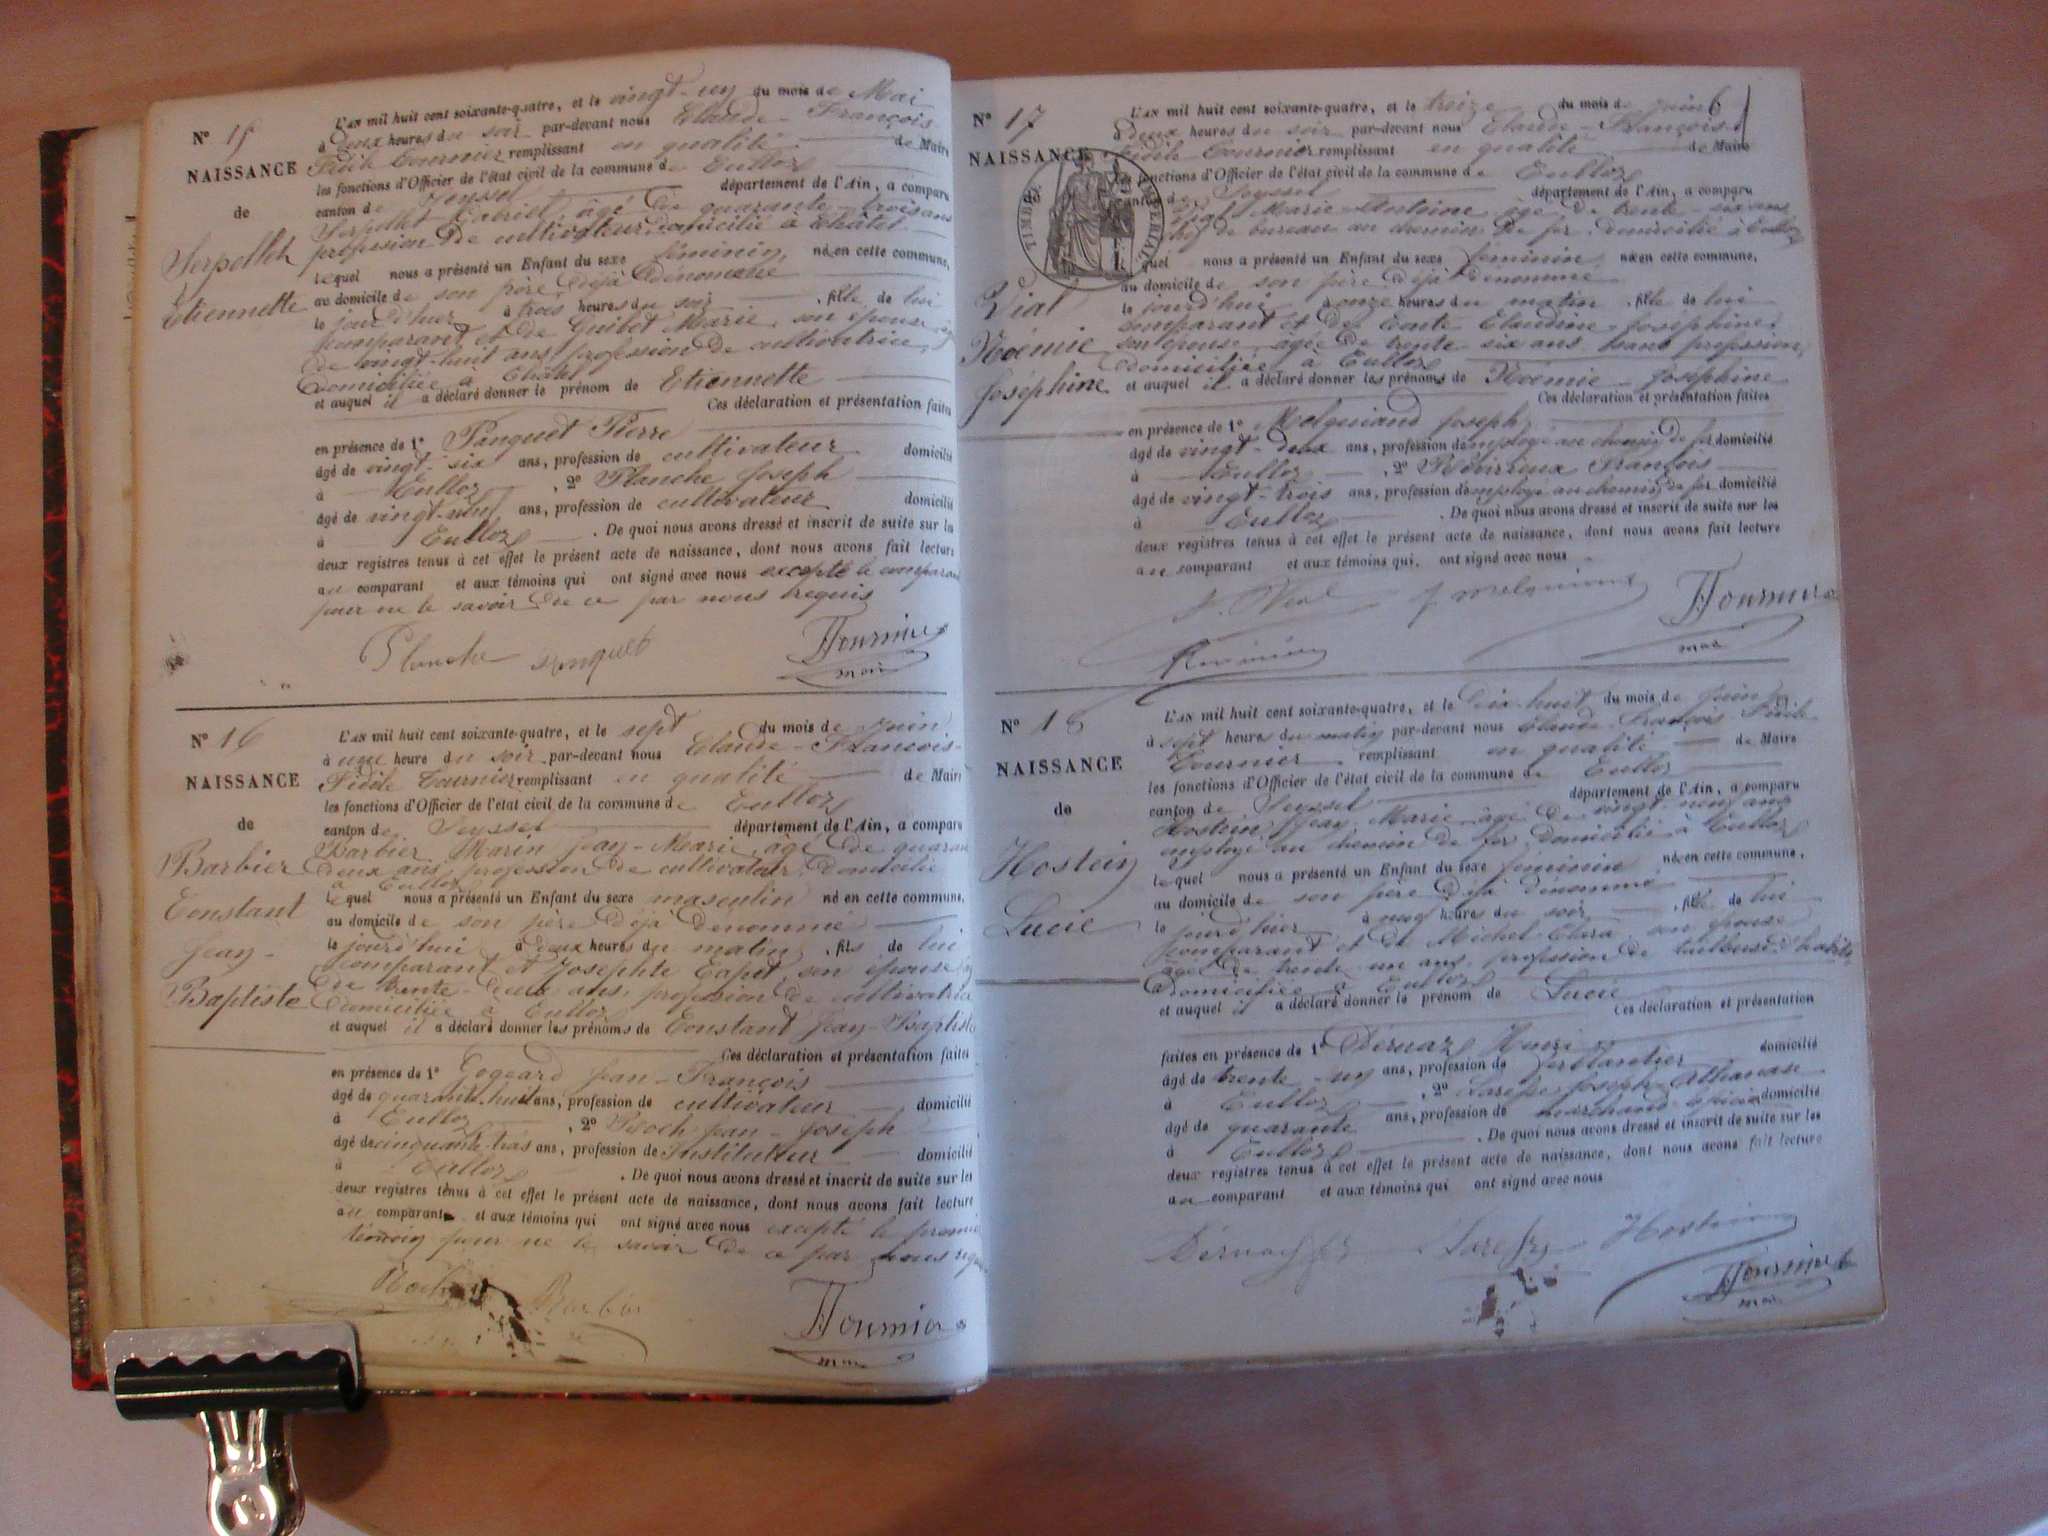 N° 15
NAISSANCE
de
Serpollet
Etiennette
L'an mil huit cent soixante-quatre, et le vingt-un du mois de Mai
à deux heures du soir par-devant nous Claude-François-
Fidèle Tournier remplissant en qualité de Maire
les fonctions d'Officier de l'état civil de la commune de Culloz
canton de Seyssel département de l'Ain, a comparu
Serpollet Gabriel, âgé de quarante-trois ans
profession de cultivateur, domicilié à Châtel
lequel nous a présenté un Enfant du sexe féminin, né en cette commune,
au domicile de son père déjà dénommé
le jour d'hier à trois heures du soir, fille de lui
comparant et de Guibet Marie, son épouse
de vingt-huit ans, profession de cultivatrice,
domiciliée à Châtel
et auquel il a déclaré donner le prénom de Etiennette
Ces déclaration et présentation faites
en présence de 1° Panquet Pierre
âgé de vingt-six ans, profession de cultivateur domicilié
à Culloz, 2° Planche Joseph
âgé de vingt-neuf ans, profession de cultivateur domicilié
à Culloz. De quoi nous avons dressé et inscrit de suite sur les
deux registres tenus à cet effet le présent acte de naissance, dont nous avons fait lecture
au comparant et aux témoins qui ont signé avec nous excepté le comparant
pour ne le savoir de ce par nous requis
Planche Panquet Tournier
maire
N° 16
NAISSANCE
de
Barbier
Constant
Jean-
Baptiste
L'an mil huit cent soixante-quatre, et le sept du mois de Juin
à une heure du soir par-devant nous Claude-François-
Fidèle Tournier remplissant en qualité de Maire
les fonctions d'Officier de l'état civil de la commune de Culloz
canton de Seyssel département de l'Ain, a comparu
Barbier Marin Jean-Marie, âgé de quarante
deux ans, profession de cultivateur, domicilié
à Culloz
lequel nous a présenté un Enfant du sexe masculin né en cette commune,
au domicile de son père déjà dénommé
le jourd'hui à deux heures du matin, fils de lui
comparant et Josephte Capet, son épouse
de trente-deux ans, profession de cultivatrice
domiciliée à Culloz
et auquel il a déclaré donner les prénoms de Constant Jean-Baptiste
Ces déclaration et présentation faites
en présence de 1° Gogeard Jean-François
âgé de quarante-huit ans, profession de cultivateur domicilié
à Culloz, 2° Roch Jean-Joseph
âgé de cinquante-trois ans, profession de Instituteur domicilié
à Culloz. De quoi nous avons dressé et inscrit de suite sur les
deux registres tenus à cet effet le présent acte de naissance, dont nous avons fait lecture
au comparant et aux témoins qui ont signé avec nous excepté le premier
témoin pour ne le savoir de ce par nous requis
Roch Barbier Tournier
maire
6
N° 17
NAISSANCE
TIMBRE IMPERIAL
Vial
Noémie
Joséphine
L'an mil huit cent soixante-quatre, et le treize du mois de Juin
à deux heures du soir par-devant nous Claude-François-
Fidèle Tournier remplissant en qualité de Maire
les fonctions d'Officier de l'état civil de la commune de Culloz
canton de Seyssel département de l'Ain, a comparu
Vial Marie-Antoine âgé de trente-six ans
chef de bureau au chemin de fer, domicilié à Culloz
lequel nous a présenté un Enfant du sexe féminin né en cette commune,
au domicile de son père déjà dénommé
le jourd'hui à onze heures du matin, fille de lui
comparant et de Conte Claudine Joséphine,
son épouse, âgée de trente-six ans, sans profession,
domiciliée à Culloz
et auquel il a déclaré donner les prénoms de Noémie-Joséphine
Ces déclaration et présentation faites
en présence de 1° Molquiand Joseph
âgé de vingt-deux ans, profession d'employé au chemin de fer domicilié
à Culloz, 2° François
âgé de vingt-trois ans, profession d'employé au chemin de fer domicilié
à Culloz. De quoi nous avons dressé et inscrit de suite sur les
deux registres tenus à cet effet le présent acte de naissance, dont nous avons fait lecture
au comparant et aux témoins qui, ont signé avec nous
Vial Tournier
maire
N° 18
NAISSANCE
de
Hostein
Lucie
L'an mil huit cent soixante-quatre, et le dix-huit du mois de Juin
à sept heures du matin par-devant nous Claude-François Fidèle
Tournier remplissant en qualité de Maire
les fonctions d'Officier de l'état civil de la commune de Culloz
canton de Seyssel département de l'Ain, a comparu
Hostein Jean-Marie âgé de vingt-neuf ans
employé au chemin de fer, domicilié à Culloz
lequel nous a présenté un Enfant du sexe féminin né en cette commune,
au domicile de son père déjà dénommé
le jour d'hier à neuf heures du soir, fille de lui
comparant et de Michel Clara son épouse
âgée de trente-un ans, profession de tailleuse d'habits,
domiciliée à Culloz
et auquel il a déclaré donner le prénom de Lucie
Ces déclaration et présentation
faites en présence de 1° Dérnaz Henri
âgé de trente-un ans, profession de ferblantier domicilié
à Culloz, 2° Larépe Joseph-Athanase
âgé de quarante ans, profession de marchand épicier domicilié
à Culloz. De quoi nous avons dressé et inscrit de suite sur les
deux registres tenus à cet effet le présent acte de naissance, dont nous avons fait lecture
au comparant et aux témoins qui ont signé avec nous
Hostein
Tournier
maire